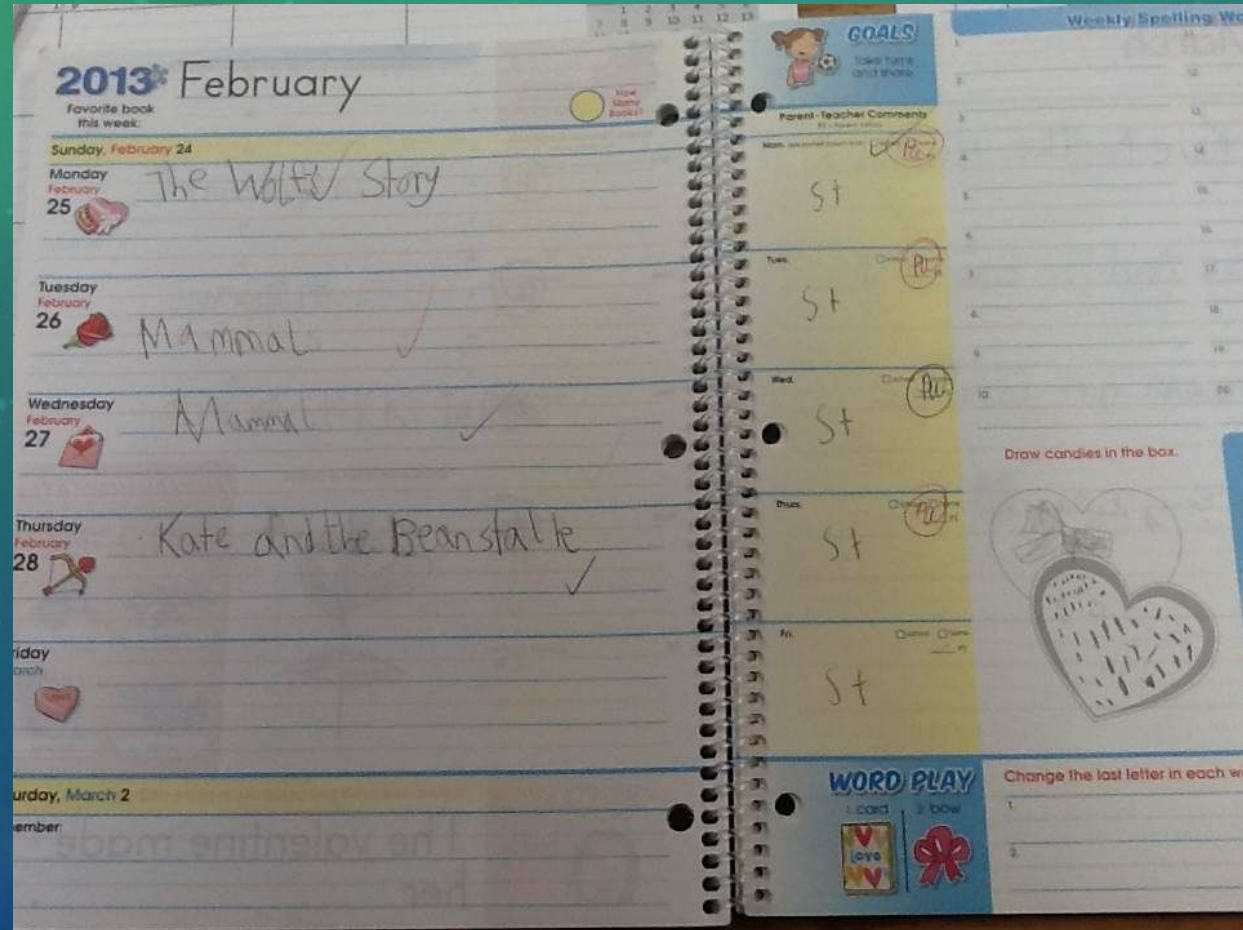 1 2 3 4 5 6
7 8 9 10 11 12 13
2013 February
Favorite book
this week:
How
Many
Books?
Sunday, February 24
Monday
February
25
The Wolf's Story
Tuesday
February
26
Mammal
Wednesday
February
27
Mammal
Thursday
February
28
Kate and the Beanstalk
riday
arch
urday, March 2
ember:
GOALS
Take turns
and share
Parent-Teacher Comments
Mon.
St
Tues.
St
Wed.
St
Thurs.
St
Fri.
St
WORD PLAY
1. card
2. bow
love
Weekly Spelling Wo
Draw candies in the box.
Change the last letter in each w
1.
2.
The valentine made
her